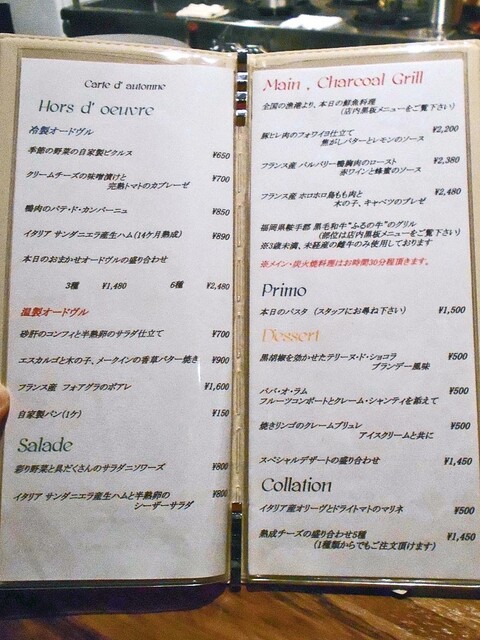 Carte d' automne
Hors d' oeuvre
冷製オードヴル
季節の野菜の自家製ピクルス ¥650
クリームチーズの味噌漬けと
完熟トマトのカプレーゼ ¥700
鴨肉のパテ・ド・カンパーニュ ¥850
イタリア サンダニエラ産生ハム(14ケ月熟成) ¥890
本日のおまかせオードヴルの盛り合わせ
3種 ¥1,480 6種 ¥2,480
温製オードヴル
砂肝のコンフィと半熟卵のサラダ仕立て ¥700
エスカルゴと木の子、メークインの香草バター焼き ¥900
フランス産 フォアグラのポアレ ¥1,600
自家製パン(1ケ) ¥150
Salade
彩り野菜と具だくさんのサラダニソワーズ ¥800
イタリア サンダニエラ産生ハムと半熟卵の ¥800
シーザーサラダ
Main , Charcoal Grill
全国の漁港より、本日の鮮魚料理
(店内黒板メニューをご覧下さい)
豚ヒレ肉のフォワイヨ仕立て ¥2,200
焦がしバターとレモンのソース
フランス産 バルバリー鴨胸肉のロースト ¥2,380
赤ワインと蜂蜜のソース
フランス産 ホロホロ鳥もも肉と ¥2,480
木の子、キャベツのブレゼ
福岡県鞍手郡 黒毛和牛“ふるの牛”のグリル
(部位は店内黒板メニューをご覧下さい)
※3歳未満、未経産の雌牛のみ使用しております
※メイン・炭火焼料理はお時間30分程頂きます。
Primo
本日のパスタ (スタッフにお尋ね下さい) ¥1,500
Dessert
黒胡椒を効かせたテリーヌ・ド・ショコラ ¥500
ブランデー風味
ババ・オ・ラム ¥500
フルーツコンポートとクレーム・シャンティを添えて
焼きリンゴのクレームブリュレ ¥500
アイスクリームと共に
スペシャルデザートの盛り合わせ ¥1,450
Collation
イタリア産オリーヴとドライトマトのマリネ ¥500
熟成チーズの盛り合わせ5種 ¥1,450
(1種類からでもご注文頂けます)